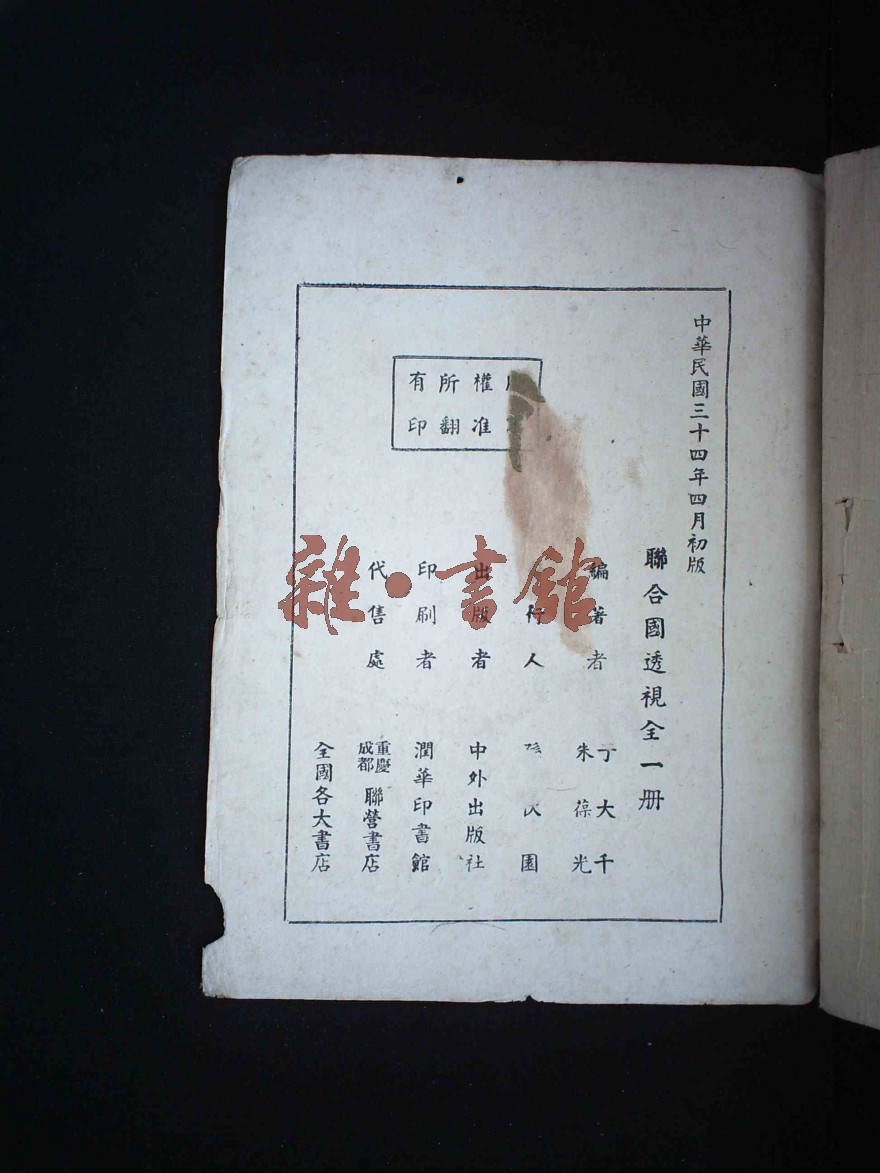 中華民國三十四年四月初版
聯合國透視全一册
編著者 丁大千
朱葆光
行人 伏園
出版者 中外出版社
印刷者 潤華印書館
代售處 重慶
成都 聯營書店
全國各大書店
權所有
准翻印
雜·書館